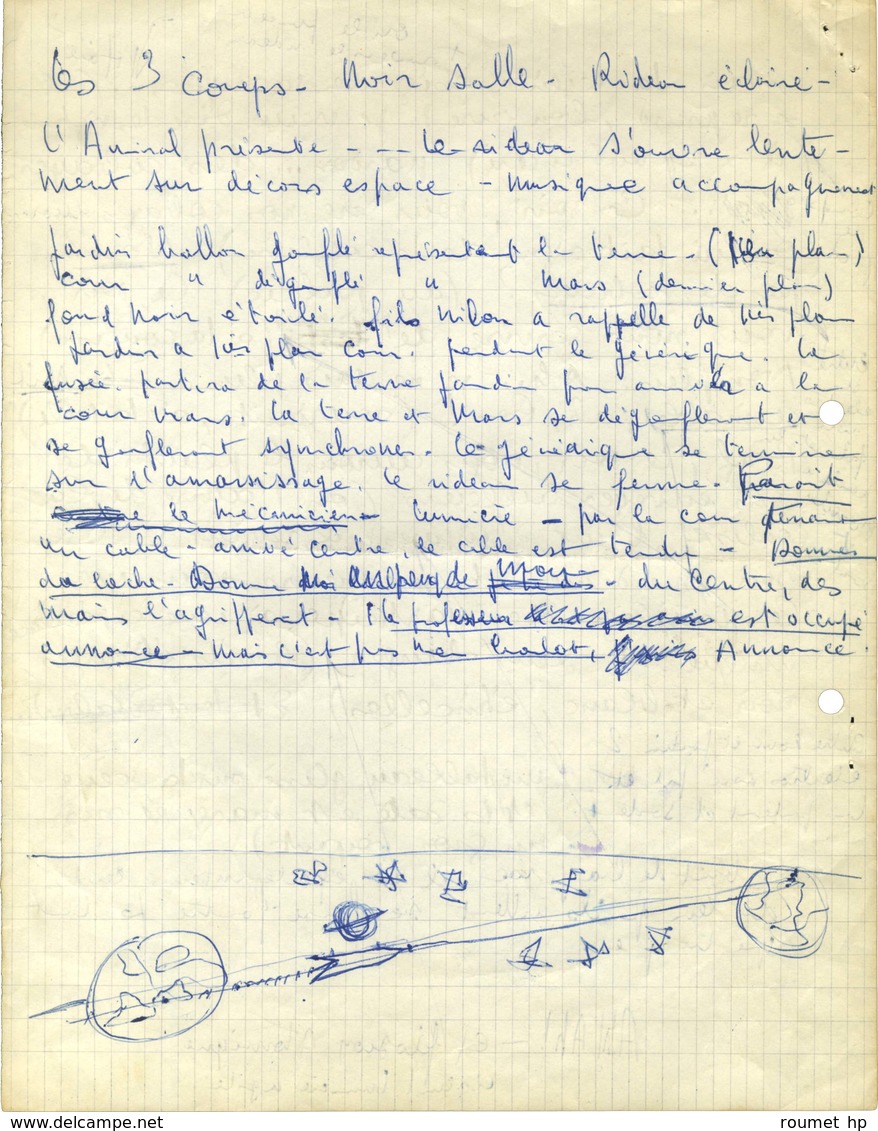 Les 3 coups - Noir salle - Rideau éclairé -
L'Amiral présente - - - Le rideau s'ouvre lente-
ment sur décors espace - musique accompagnement
Jardin ballon gonflé représentant la terre - (1er plan)
Cour " dégonflé " Mars (dernier plan)
fond noir étoilé. fils nilon a rappelle de 1er plan
Jardin a 1er plan cour. pendant le générique. La
fusée partira de la terre jardin pour arriver a la
cour mars. La terre et Mars se dégonfleront et
se gonfleront synchrones. Le générique se termine
sur l'amarsissage. le rideau se ferme. Parait
le mécanicien lumière - par la cour tenant
un cable - arrivé centre, le cable est tendu - Donnes
du lache - Donne moi du - du centre, des
mains l'agrippent - le professeur est occupé
annonce - mais c'est pas mon boulot, Annonce.
roumet hp